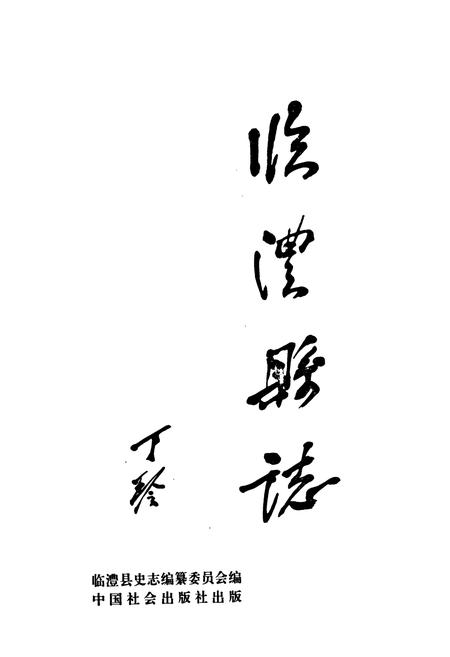 临澧縣誌
丁玲
临澧县史志编纂委员会编
中国社会出版社出版